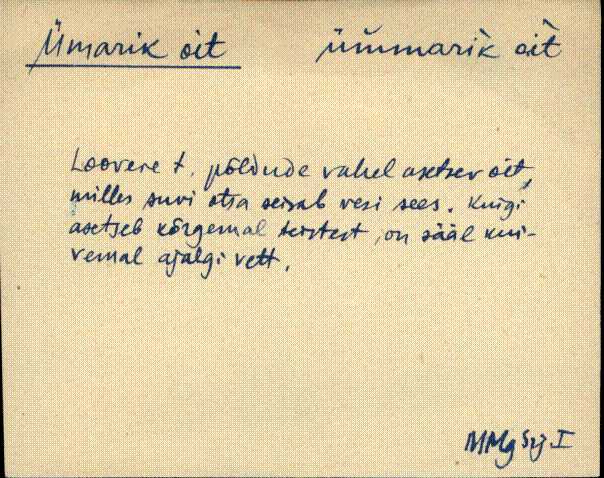 Ümarik oit ümmarik oit
Loovere t. põldude vahel asetsev oit,
milles suvi otsa seisab vesi sees. Kuigi
asetseb kõrgemal teistest, on sääl kui-
vemal ajalgi vett.
MMg I